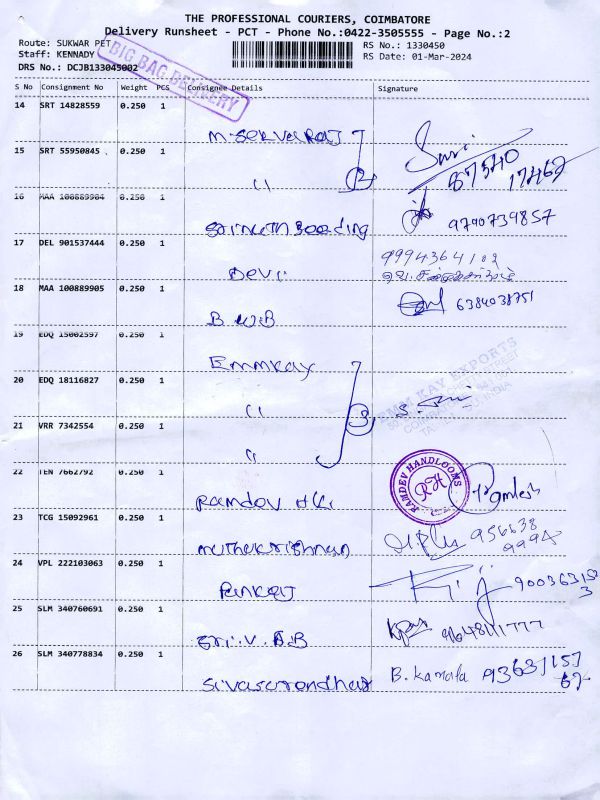 THE PROFESSIONAL COURIERS, COIMBATORE
Delivery Runsheet - PCT - Phone No.:0422-3505555 - Page No.:2
Route: SUKWAR PET
Staff: KENNADY
DRS No.: DCJB133045002
RS No.: 1330450
RS Date: 01-Mar-2024
BIG BAG DELIVERY
S No Consignment No Weight PCS Consignee Details Signature
14 SRT 14828559 0.250 1
M. SelvaRaj
15 SRT 55950845 0.250 1
2
87540
17462
16 MAA 100889904 0.250 1
9790739857
17 DEL 901537444 0.250 1
Devi
18 MAA 100889905 0.250 1
6384038751
19 EDQ 15002597 0.250 1
Emmkay
EMM KAY EXPORTS
20 EDQ 18116827 0.250 1
3
21 VRR 7342554 0.250 1
22 TEN 7662792 0.250 1
Ramdev
RAMDEV HANDLOOMS
RH
23 TCG 15092961 0.250 1
muthukrishnan
956638
24 VPL 222103063 0.250 1
Pankaj
25 SLM 340760691 0.250 1
26 SLM 340778834 0.250 1
B. Kamala